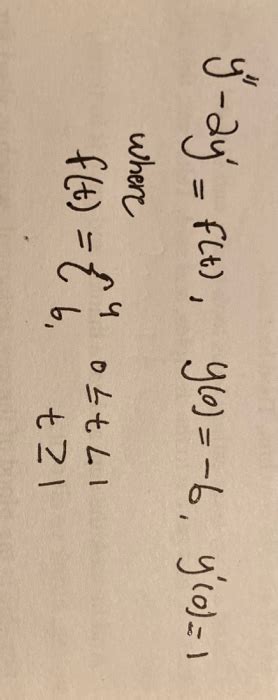 y'' - 2y' = f(t), y(0) = -6, y'(0) = 1
where
f(t) = { 4 0 ≤ t < 1
6, t ≥ 1